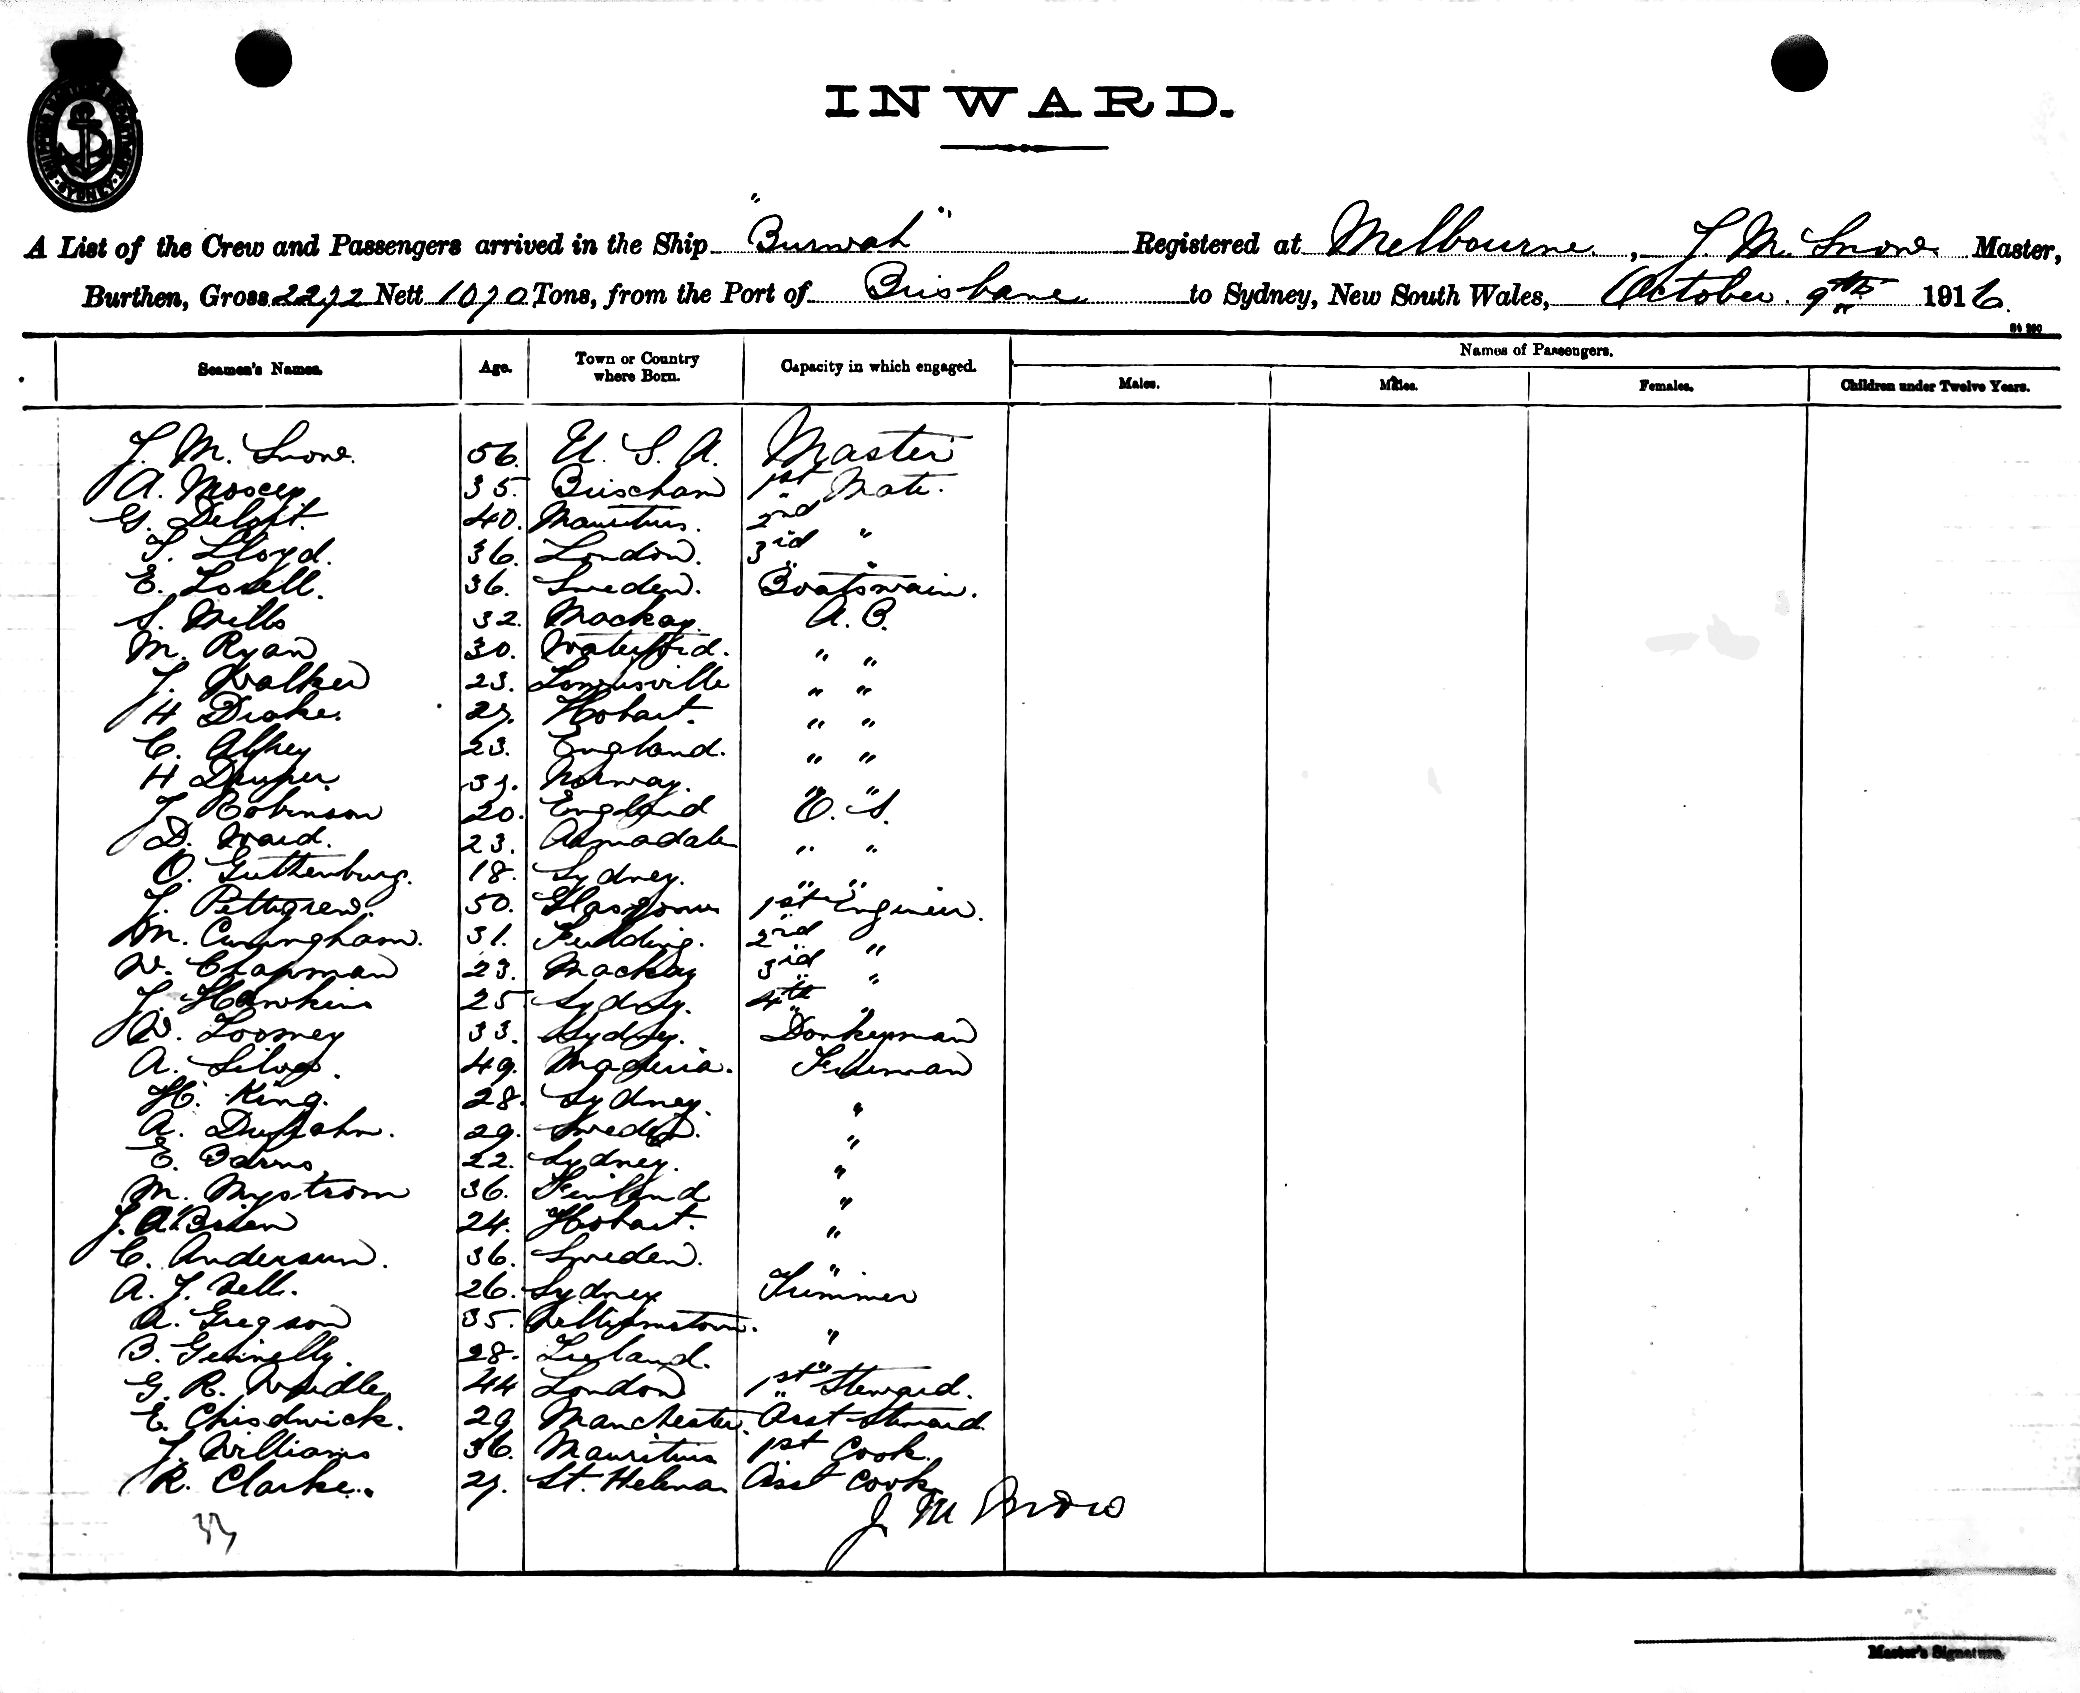 INWARD.
A List of the Crew and Passengers arrived in the Ship "Burwah" Registered at Melbourne, J. M. Snow. Master,
Burthen, Gross 2272 Nett 1070 Tons, from the Port of Brisbane to Sydney, New South Wales, October 9th 1916.
Seamen's Names. Age. Town or Country where Born. Capacity in which engaged. Names of Passengers.
Males. Males. Females. Children under Twelve Years.
J. M. Snow. 56. U. S. A. Master
A. Moscey 35. Brischam 1st Mate.
G. 40. Mauritius. 2nd "
T. Lloyd. 36. London. 3rd "
E. 36. Sweden. Boatswain.
S. Mills 32. Mackay. A. B.
M. Ryan 30. Waterford. " "
J. Walker 23. Louisville " "
H Drake. 27. Hobart. " "
C. Alfrey 23. England. " "
H 37. Norway. " "
J. Robinson 20. England O. S.
D. Ward. 23. Armadale " "
O. Guttenburg. 18. Sydney. " "
J. Pettigrew. 50. Glasgow 1st Engineer.
M. Cunningham. 31. 2nd "
W. Chapman 23. Mackay 3rd "
J. Hawkins 25 Sydney. 4th "
W. Toomey 33. Sydney. Donkeyman
A. Silva. 49. Maderia. Fireman
H. King. 28. Sydney. "
A. 29. Sweden. "
E. Barns 22. Sydney. "
M. Nystrom 36. Finland "
J. O'Brien 24. Hobart. "
C. Anderson. 36. Sweden. "
A. J. 26. Sydney Trimmer
A. Gregson 35. Williamstown. "
B. 28. Ireland. "
G. R. 44 London 1st Steward.
E. Chisdwick. 29 Manchester. Asst Steward
J. Williams 36. Mauritius 1st Cook.
R. Clarke. 27. St. Helena Asst Cook
J M Snow
33
Master's Signature.